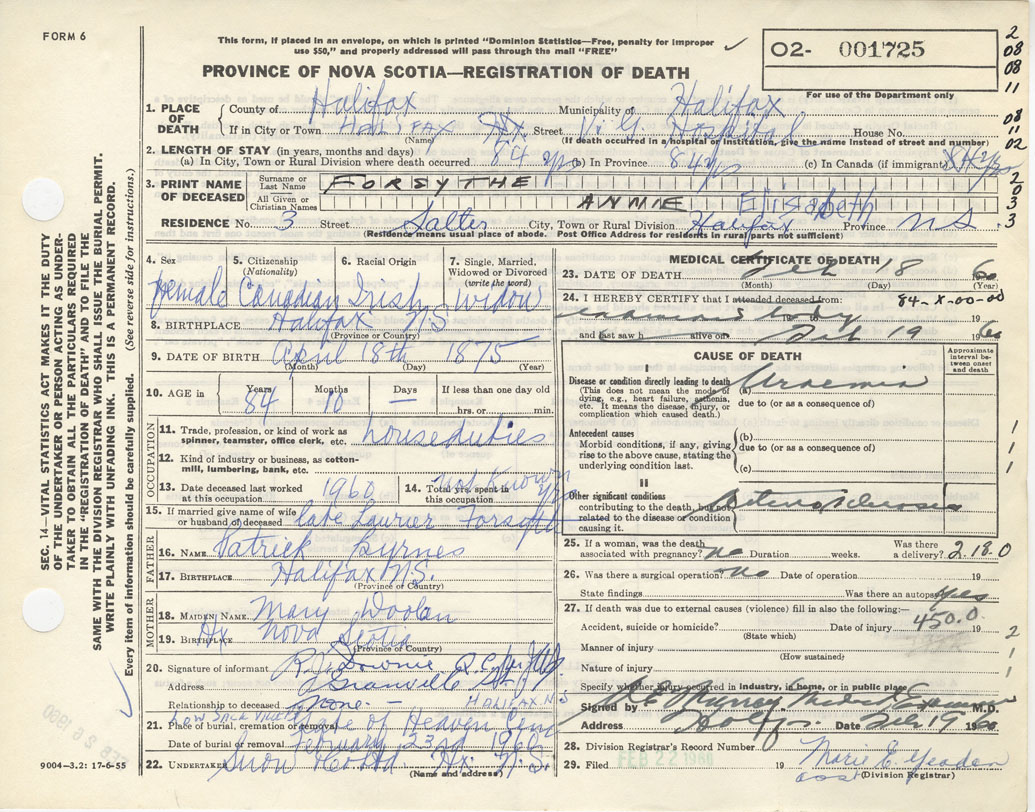 FORM 6
This form, if placed in an envelope, on which is printed "Dominion Statistics—Free, penalty for improper
use $50," and properly addressed will pass through the mail "FREE"
O2- 001725
For use of the Department only
2
08
08
11
PROVINCE OF NOVA SCOTIA—REGISTRATION OF DEATH
1. PLACE OF DEATH
County of Halifax Municipality of Halifax
If in City or Town HALIFAX Hx Street V. G. Hospital House No.
(Name) (If death occurred in a hospital or institution, give the name instead of street and number)
08
11
02
2. LENGTH OF STAY (in years, months and days)
(a) In City, Town or Rural Division where death occurred 84 yrs (b) In Province 84 yrs (c) In Canada (if immigrant) 84 yrs
3. PRINT NAME OF DECEASED
Surname or Last Name FORSYTHE
All Given or Christian Names ANMIE Elizabeth
2
0
3
3
RESIDENCE No. 3 Street Salter City, Town or Rural Division Halifax Province N S
(Residence means usual place of abode. Post Office Address for residents in rural parts not sufficient)
SEC. 14—VITAL STATISTICS ACT MAKES IT THE DUTY
OF THE UNDERTAKER OR PERSON ACTING AS UNDER-
TAKER TO OBTAIN ALL THE PARTICULARS REQUIRED
IN THE "REGISTRATION OF DEATH" AND TO FILE THE
SAME WITH THE DIVISION REGISTRAR WHO SHALL ISSUE THE BURIAL PERMIT.
WRITE PLAINLY WITH UNFADING INK. THIS IS A PERMANENT RECORD.
Every item of information should be carefully supplied. (See reverse side for instructions.)
4. Sex 5. Citizenship (Nationality) 6. Racial Origin 7. Single, Married, Widowed or Divorced (write the word)
Female Canadian Irish Widow
8. BIRTHPLACE Halifax N S
(Province or Country)
9. DATE OF BIRTH April 18th 1875
(Month) (Day) (Year)
10. AGE in Years 84 Months 10 Days — If less than one day old
hrs. or min.
OCCUPATION
11. Trade, profession, or kind of work as
spinner, teamster, office clerk, etc. house duties
12. Kind of industry or business, as cotton-
mill, lumbering, bank, etc.
13. Date deceased last worked
at this occupation 1960
14. Total yrs. spent in
this occupation Not Known yrs
15. If married give name of wife
or husband of deceased late Laurier Forsyth
FATHER
16. NAME Patrick Byrnes
17. BIRTHPLACE Halifax N.S.
(Province or Country)
MOTHER
18. MAIDEN NAME Mary Woolan
19. BIRTHPLACE Hx Nova Scotia
(Province or Country)
20. Signature of informant R. J. Downie Q.C.
Address Granville St
Relationship to deceased none. — HALIFAX N.S
LOW SACKVILLE
21. Place of burial, cremation or removal Gate of Heaven Cem
Date of burial or removal February 23rd 1960
22. UNDERTAKER Snow Co Ltd Hx. N.S.
(Name and address)
9004-3.2: 17-6-55
MEDICAL CERTIFICATE OF DEATH
23. DATE OF DEATH Feb 18 60
(Month) (Day) (Year)
24. I HEREBY CERTIFY that I attended deceased from: 84-X-00-00
examined body 19
and last saw h alive on Feb 19 1960
CAUSE OF DEATH
Approximate interval between onset and death
I
Disease or condition directly leading to death (a) Uraemia
(This does not mean the mode of
dying, e.g., heart failure, asthenia,
etc. It means the disease, injury, or
complication which caused death.)
due to (or as a consequence of)
Antecedent causes
Morbid conditions, if any, giving
rise to the above cause, stating the
underlying condition last.
(b)
due to (or as a consequence of)
(c)
1
1
1
II
Other significant conditions
contributing to the death, but not
related to the disease or condition
causing it.
Arteriosclerosis
25. If a woman, was the death
associated with pregnancy? no Duration weeks. Was there
a delivery? 2.18.0
26. Was there a surgical operation? no Date of operation 19
State findings Was there an autopsy yes
27. If death was due to external causes (violence) fill in also the following:—
Accident, suicide or homicide? Date of injury 450.0 19
(State which)
Manner of injury
(How sustained)
Nature of injury
2
1
1
Specify whether injury occurred in industry, in home, or in public place
Signed by Murray Medical Examiner M.D.
Address Halifax Date Feb 19 1960
28. Division Registrar's Record Number
29. Filed FEB 22 1960 19 Marie E. Yeadon
asst (Division Registrar)